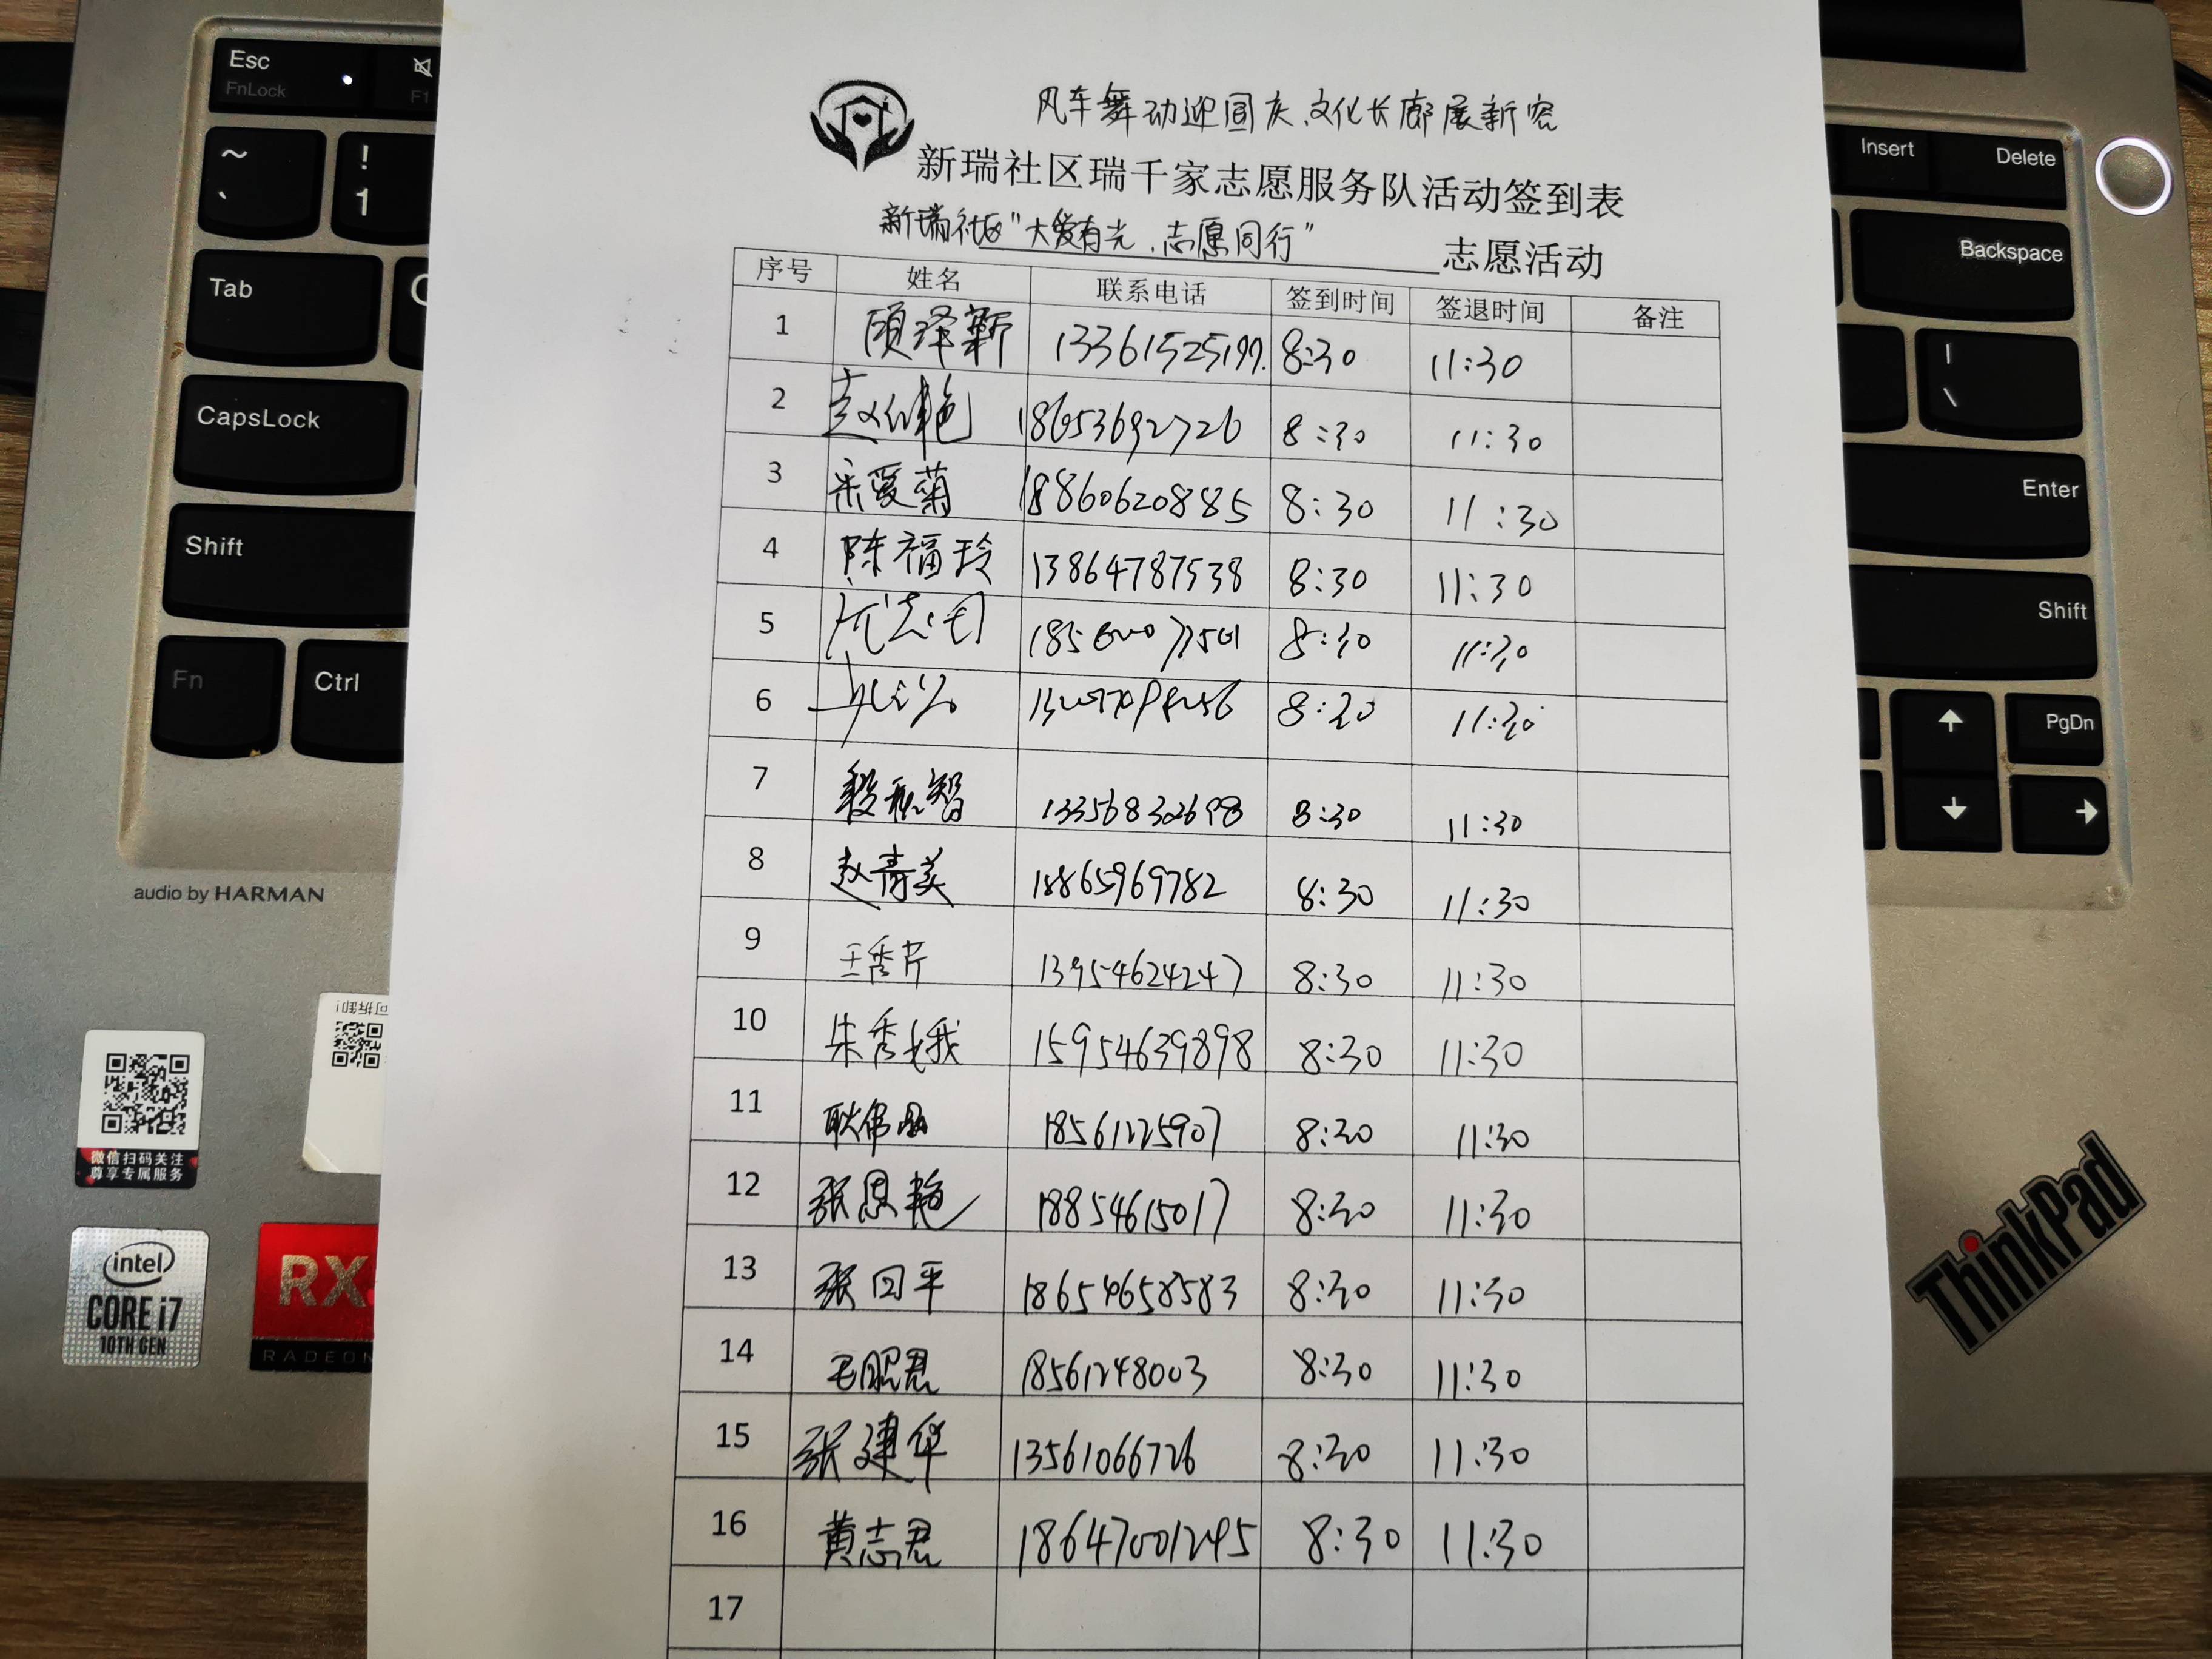 Esc
FnLock
F1
~
`
!
1
Tab
CapsLock
Shift
Fn
Ctrl
audio by HARMAN
可拆卸!
微信扫码关注
尊享专属服务
intel
CORE i7
10TH GEN
RX
RADEON
Insert
Delete
Backspace
|
\
Enter
Shift
PgDn
ThinkPad
风车舞动迎国庆,文化长廊展新容
新瑞社区瑞千家志愿服务队活动签到表
新瑞社区"大爱有光,志愿同行" 志愿活动
序号 姓名 联系电话 签到时间 签退时间 备注
1 顾泽新 8:30 11:30
2 18653692726 8:30 11:30
3 宋爱菊 18860620885 8:30 11:30
4 陈福玲 13864787538 8:30 11:30
5 8:30 11:30
6 8:30 11:30
7 13356832698 8:30 11:30
8 赵青美 18865969782 8:30 11:30
9 王秀芹 13954624247 8:30 11:30
10 朱秀娥 15954639898 8:30 11:30
11 18561225907 8:30 11:30
12 张恩艳 18854615017 8:30 11:30
13 张回平 18654658583 8:30 11:30
14 毛昭君 18561248003 8:30 11:30
15 张建华 13561066726 8:30 11:30
16 黄志君 18647001295 8:30 11:30
17